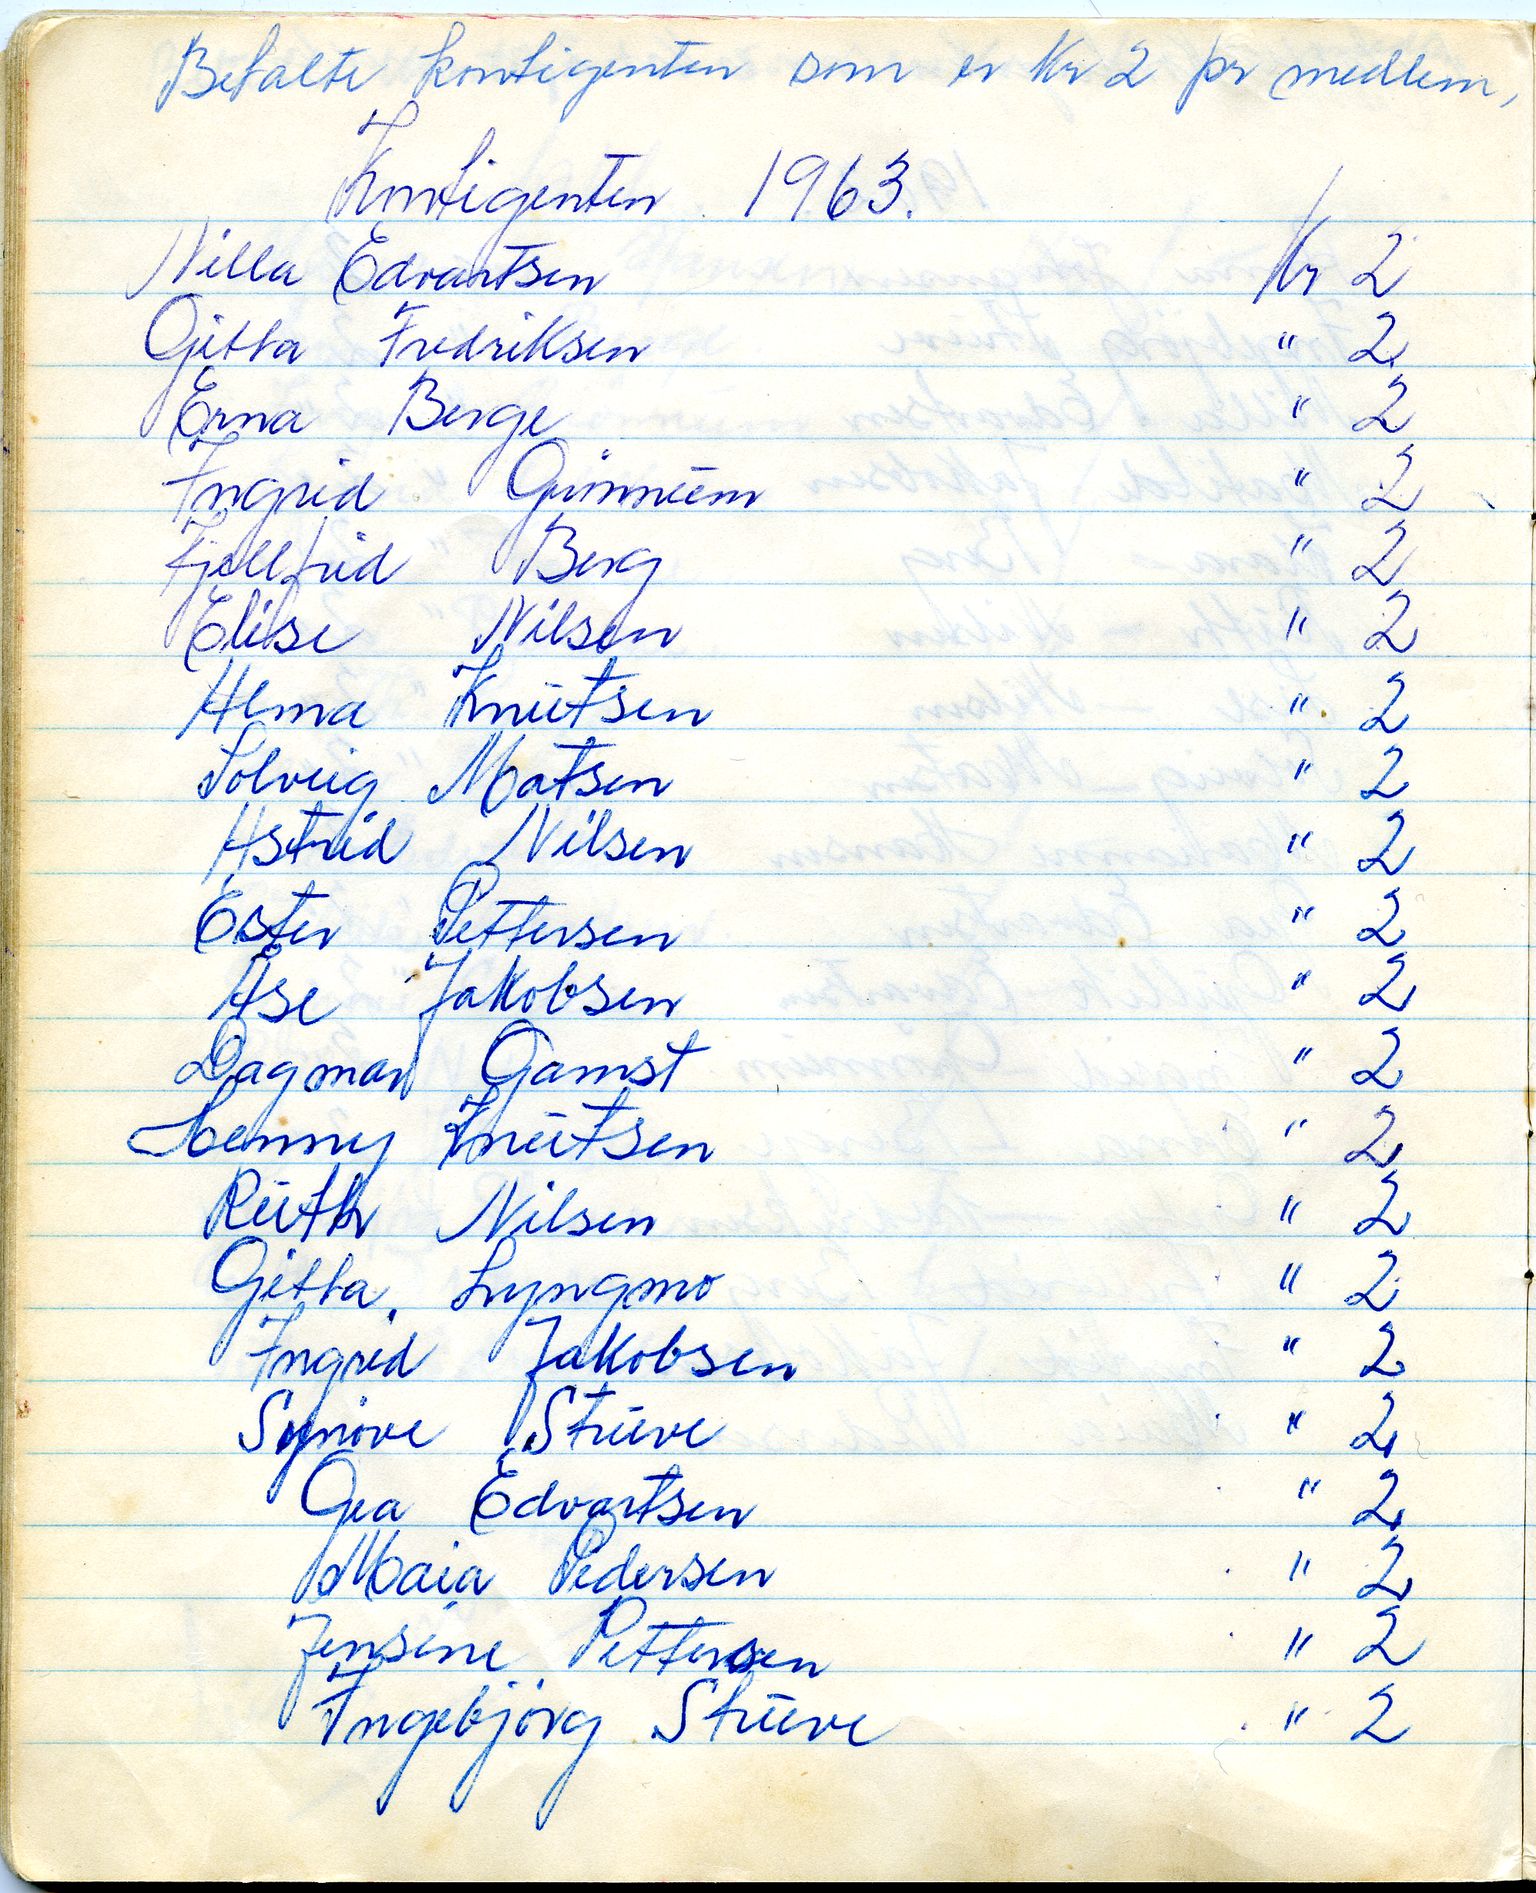 Betalte kontigenten som er Kr 2 pr medlem,
Kontigenten 1963.
Nilla Edvartsen Kr 2
Gitta Fredriksen " 2
Erna Berge " 2
Ingrid Grimnum " 2
Kjellfrid Berg " 2
Elise Nilsen " 2
Alma Knutsen " 2
Solveig Matsen " 2
Astrid Nilsen " 2
Ester Pettersen " 2
Åse Jakobsen " 2
Dagmar Gamst " 2
Lenny Knutsen " 2
Ruth Nilsen " 2
Gitta. Lyngmo " 2
Ingrid Jakobsen " 2
Synöve Strüve " 2
Gea Edvartsen " 2
Maia Pedersen " 2
Jensine Pettersen " 2
Ingebjörg Strüve " 2